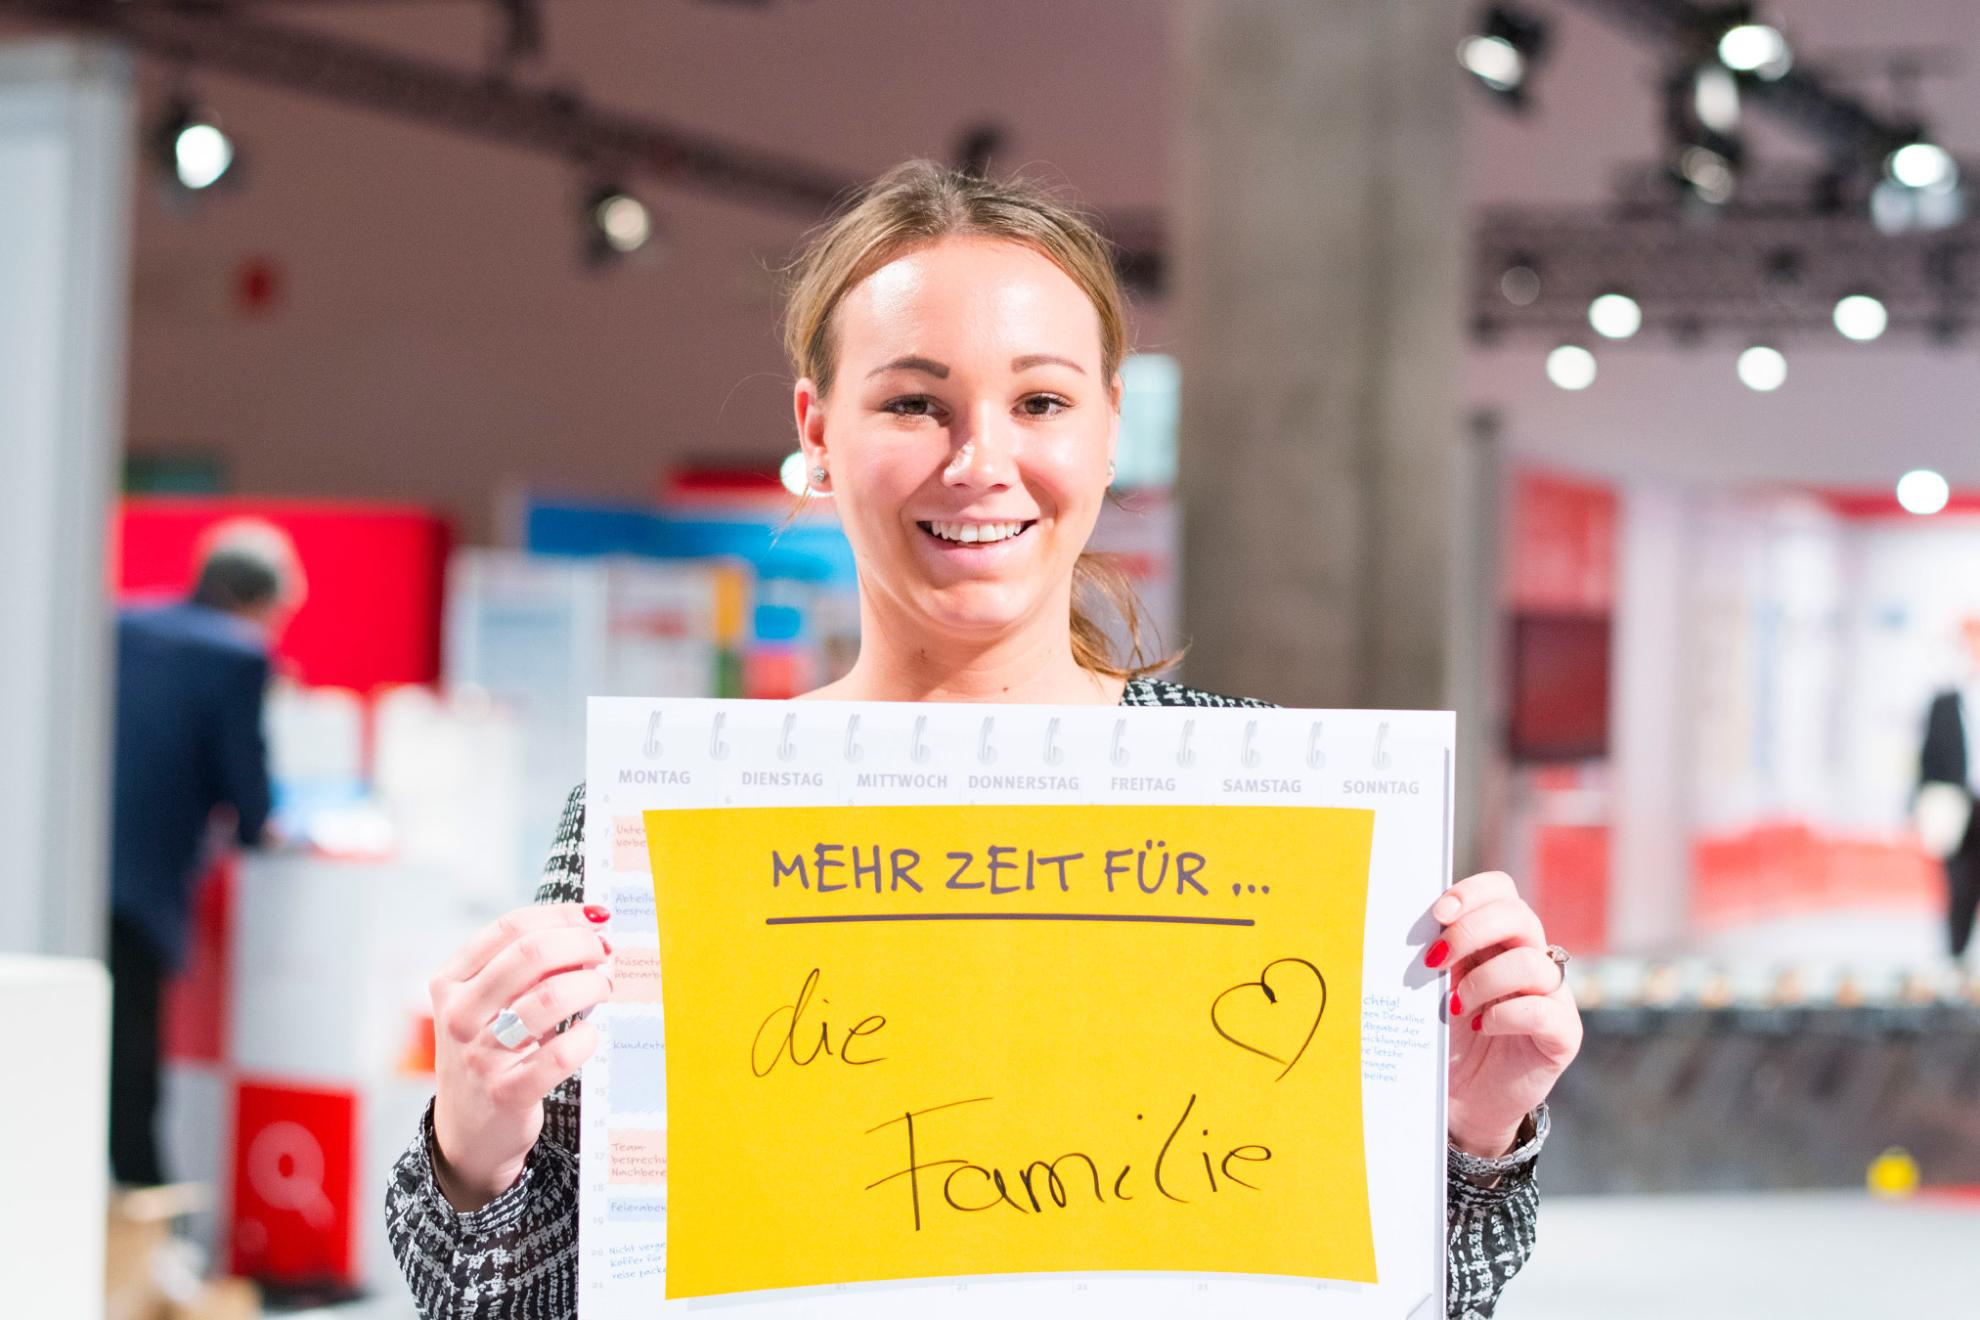 MONTAG DIENSTAG MITTWOCH DONNERSTAG FREITAG SAMSTAG SONNTAG
MEHR ZEIT FÜR ...
die
Familie
Team-
Nicht
Koffer für